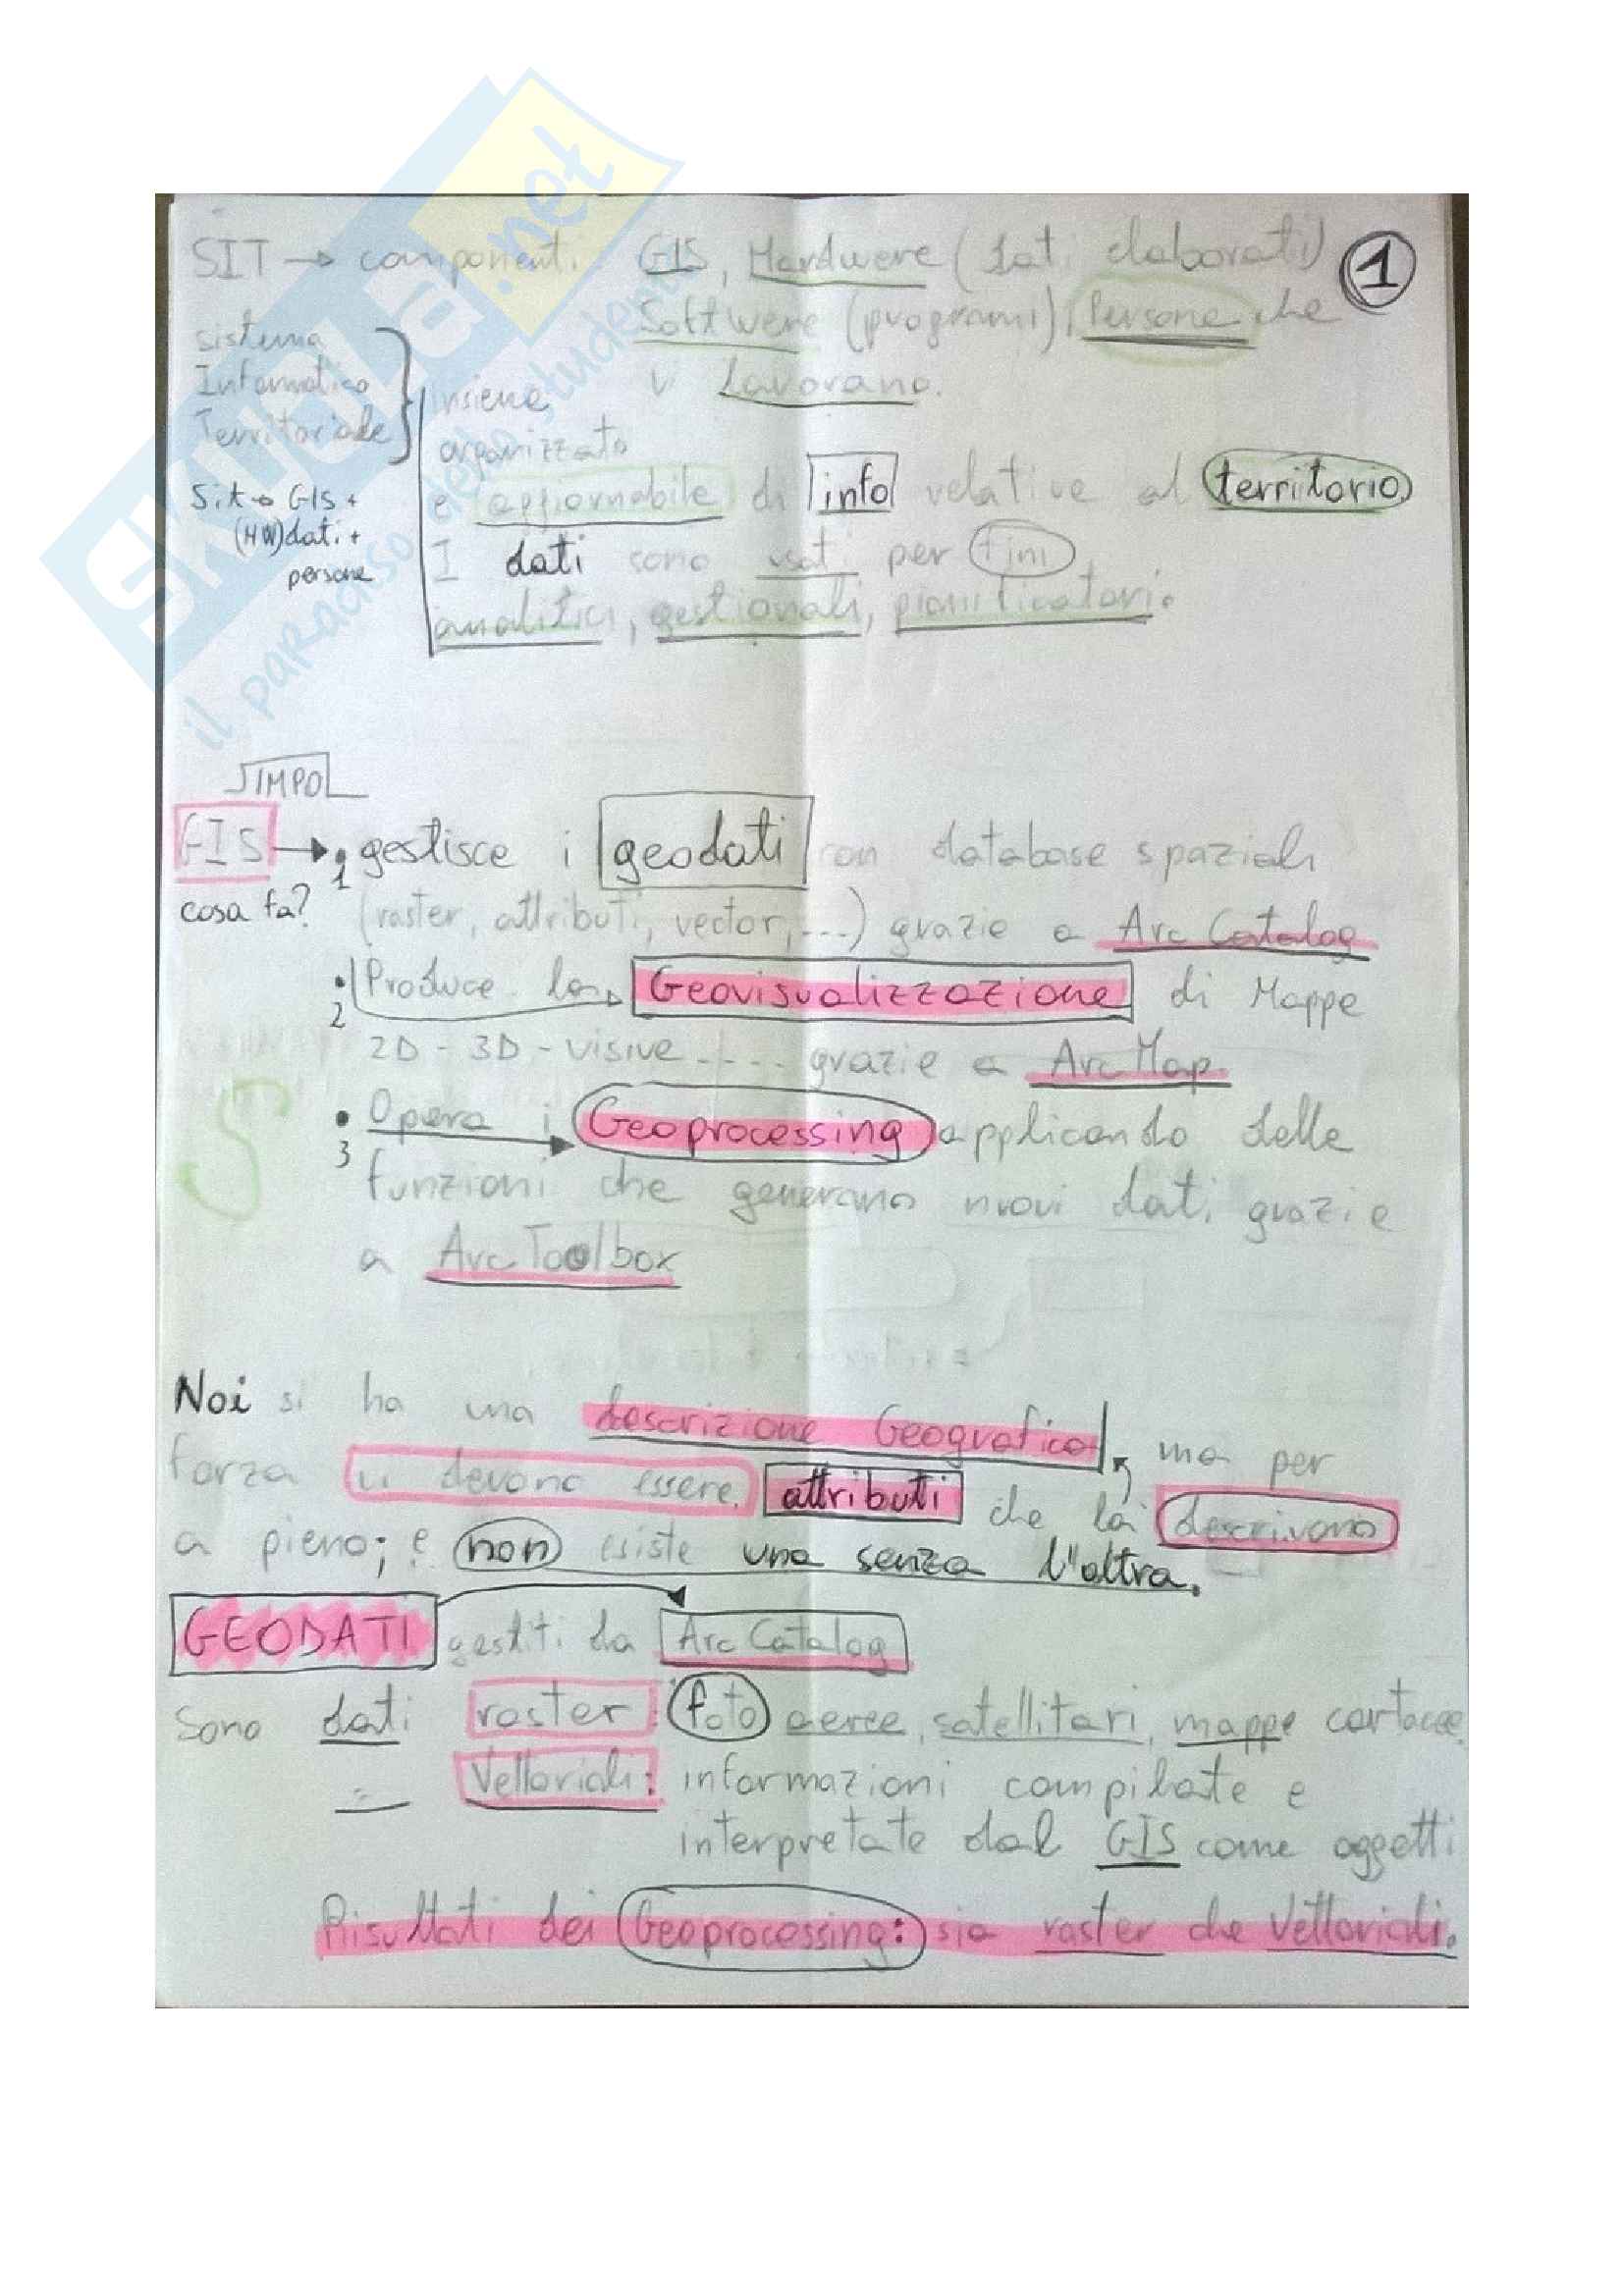 SKUOLA.net
il paradiso dello studente
1
SIT → componenti: GIS, Hardwere (dati elaborati)
Softwere (programi), Persone che
vi Lavorano.
sistema
Informatico
Territoriale
insieme
organizzato
e aggiornabile di info relative al territorio
I dati sono usati per fini
analitici, gestionali, pianificatori.
Sit → GIS +
(HW) dati +
persone
IMPO
GIS → • gestisce i geodati con database spaziali
1
cosa fa? (raster, attributi, vector, ...) grazie a Arc Catalog
• Produce la → Geovisualizzazione di Mappe
2
2D - 3D - visive - - - - grazie a Arc Map
• Opera i Geoprocessing applicando delle
3
funzioni che generano nuovi dati grazie
a Arc Toolbox
Noi si ha una descrizione Geografica ma per
forza vi devono essere attributi che la descrivono
a pieno; e non esiste una senza l'altra.
GEODATI gestiti da Arc Catalog
sono dati raster: foto aeree, satellitari, mappe cartacee
Vettoriali: informazioni compilate e
interpretate dal GIS come oggetti
Risultati dei Geoprocessing: sia raster che Vettoriali.